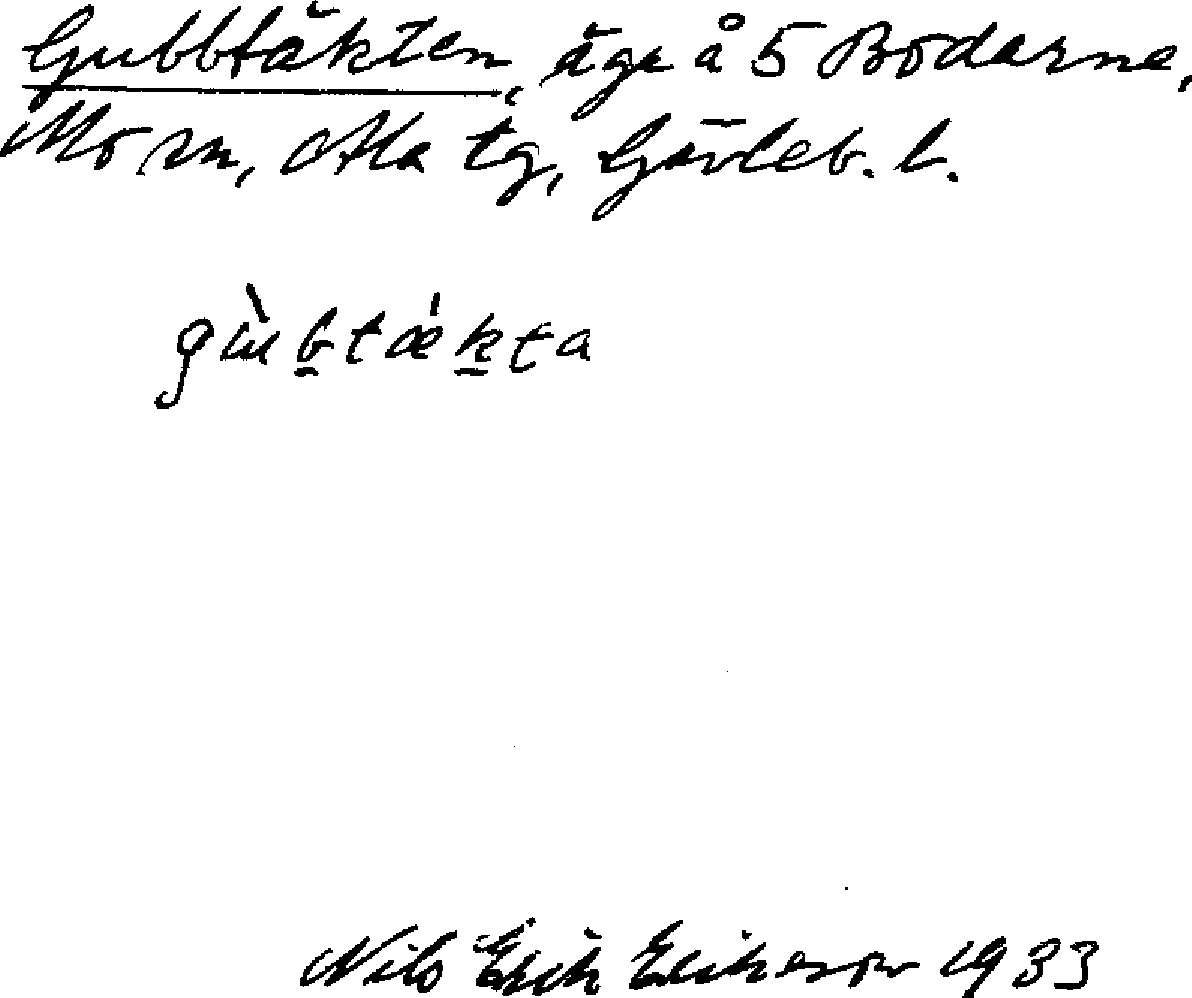 Gubbtäkten, äga å 5 Bodarne,
Mo sn, Ala tg, Gävleb. l.
gùbtǽkta
Nils Erik Erikson 1933